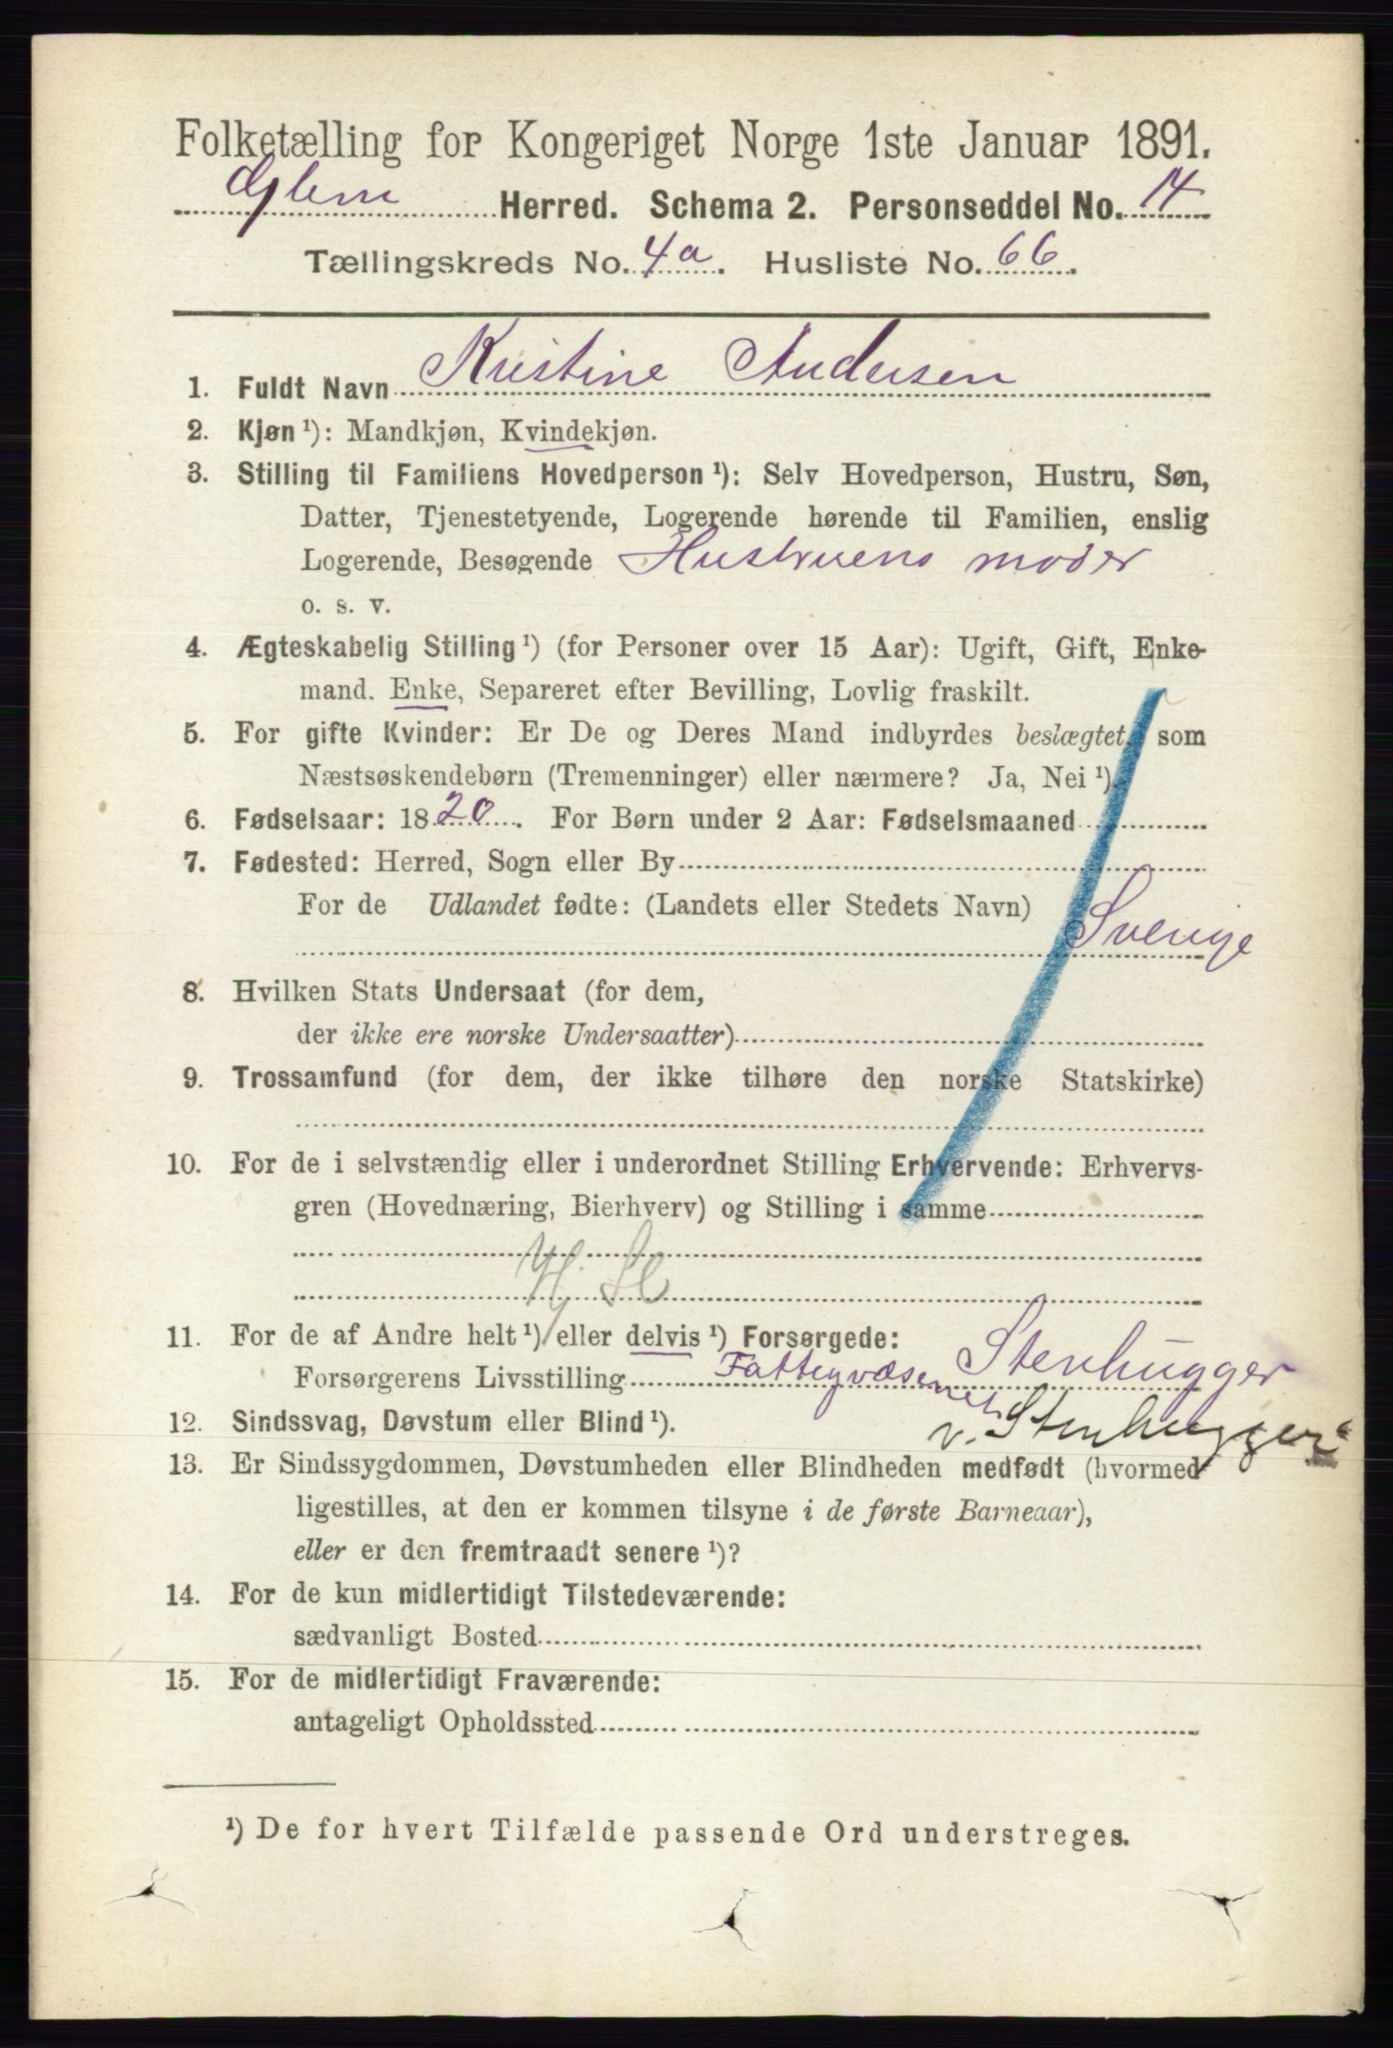 Folketælling for Kongeriget Norge 1ste Januar 1891.
Glem Herred. Schema 2. Personseddel No. 14
Tællingskreds No. 4a. Husliste No. 66.
1. Fuldt Navn Kristine Andersen
2. Kjøn ¹): Mandkjøn, Kvindekjøn.
3. Stilling til Familiens Hovedperson ¹): Selv Hovedperson, Hustru, Søn,
Datter, Tjenestetyende, Logerende hørende til Familien, enslig
Logerende, Besøgende Hustruens moder
o. s. v.
4. Ægteskabelig Stilling ¹) (for Personer over 15 Aar): Ugift, Gift, Enke-
mand. Enke, Separeret efter Bevilling, Lovlig fraskilt.
5. For gifte Kvinder: Er De og Deres Mand indbyrdes beslægtet, som
Næstsøskendebørn (Tremenninger) eller nærmere? Ja, Nei ¹).
6. Fødselsaar: 1820. For Børn under 2 Aar: Fødselsmaaned
7. Fødested: Herred, Sogn eller By
For de Udlandet fødte: (Landets eller Stedets Navn) Sverige
8. Hvilken Stats Undersaat (for dem,
der ikke ere norske Undersaatter)
9. Trossamfund (for dem, der ikke tilhøre den norske Statskirke)
10. For de i selvstændig eller i underordnet Stilling Erhvervende: Erhvervs-
gren (Hovednæring, Bierhverv) og Stilling i samme
11. For de af Andre helt ¹) eller delvis ¹) Forsørgede:
Forsørgerens Livsstilling Fattigvæsenet Stenhugger
v. Stenhugger
12. Sindssvag, Døvstum eller Blind ¹).
13. Er Sindssygdommen, Døvstumheden eller Blindheden medfødt (hvormed
ligestilles, at den er kommen tilsyne i de første Barneaar),
eller er den fremtraadt senere ¹)?
14. For de kun midlertidigt Tilstedeværende:
sædvanligt Bosted
15. For de midlertidigt Fraværende:
antageligt Opholdssted
¹) De for hvert Tilfælde passende Ord understreges.